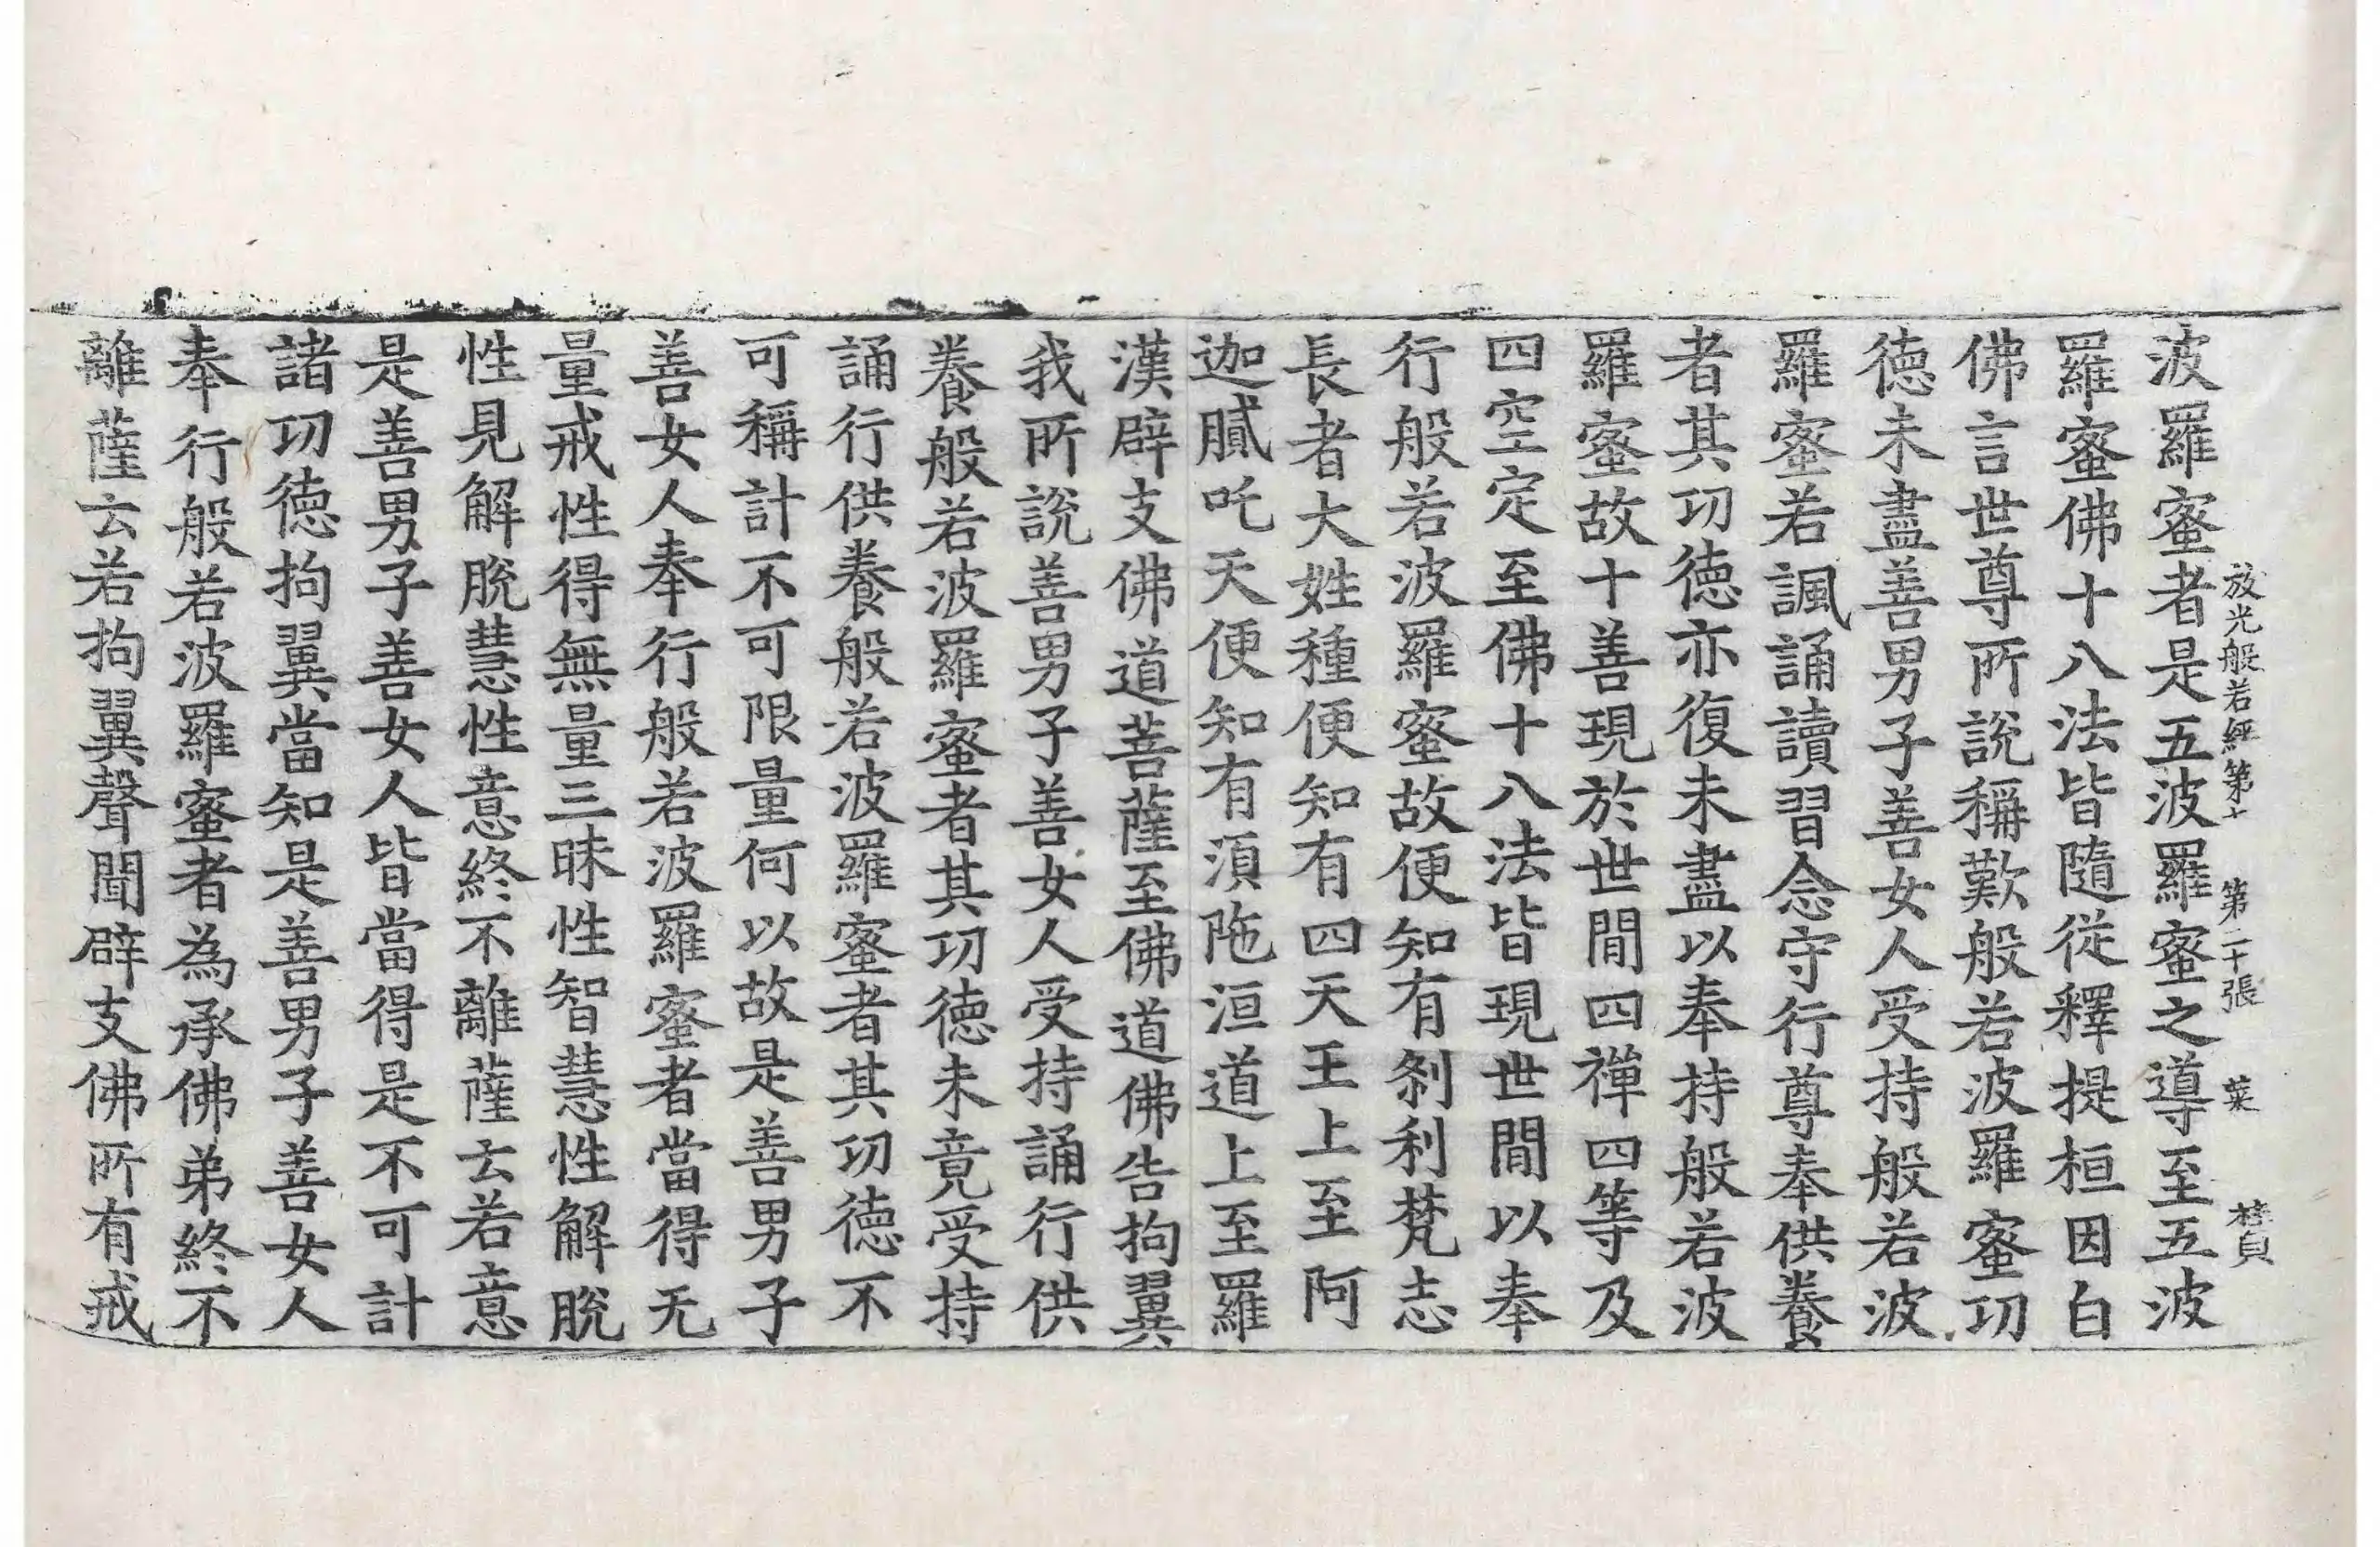 放光般若經第十 第二十張 菜
波羅蜜者是五波羅蜜之導至五波
羅蜜佛十八法皆隨從釋提桓因白
佛言世尊所說稱歎般若波羅蜜功
德未盡善男子善女人受持般若波
羅蜜若諷誦讀習念守行尊奉供養
者其功德亦復未盡以奉持般若波
羅蜜故十善現於世間四禪四等及
四空定至佛十八法皆現世間以奉
行般若波羅蜜故便知有剎利梵志
長者大姓種便知有四天王上至阿
迦膩吒天便知有須陁洹道上至羅
漢辟支佛道菩薩至佛道佛告拘翼
我所說善男子善女人受持誦行供
養般若波羅蜜者其功德未竟受持
誦行供養般若波羅蜜者其功德不
可稱計不可限量何以故是善男子
善女人奉行般若波羅蜜者當得无
量戒性得無量三昧性智慧性解脫
性見解脫慧性意終不離薩云若意
是善男子善女人皆當得是不可計
諸功德拘翼當知是善男子善女人
奉行般若波羅蜜者為承佛弟終不
離薩云若拘翼聲聞辟支佛所有戒